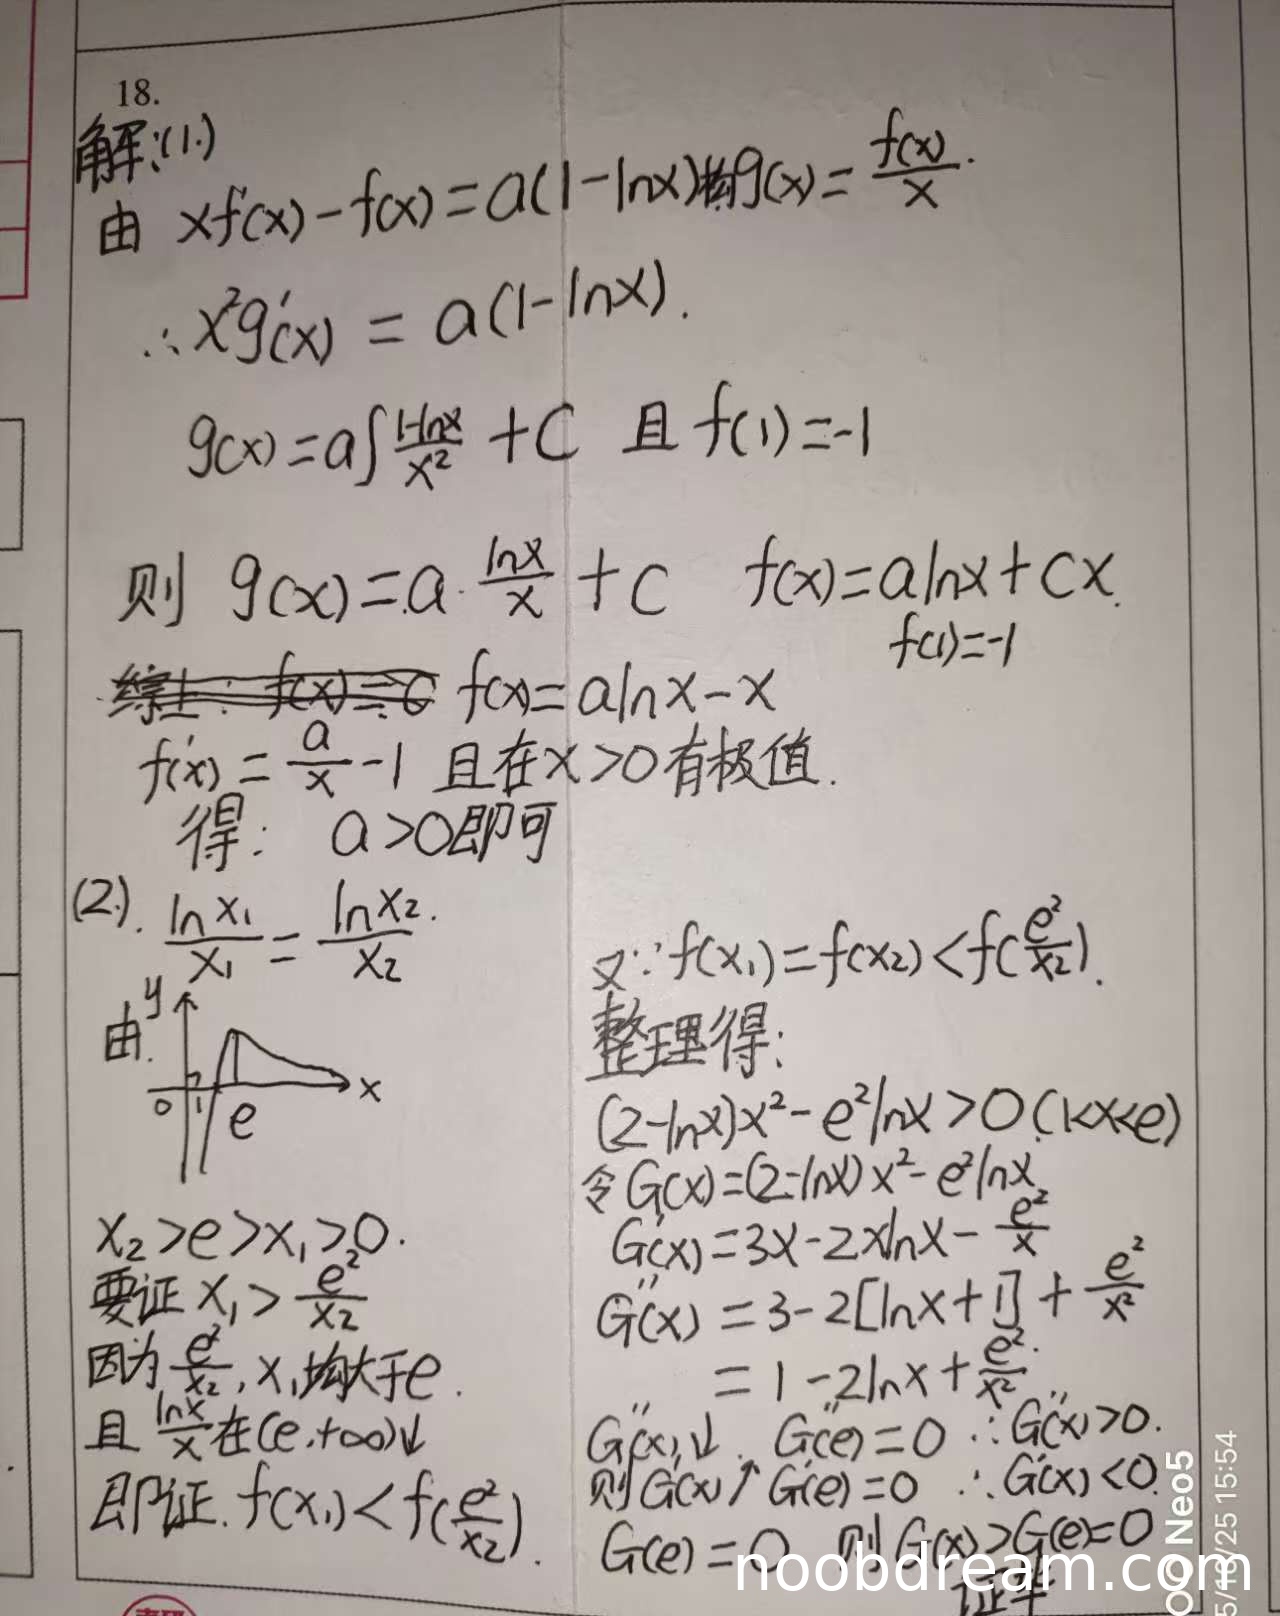 18.
解:(1.)
由 xf'(x)-f(x)=a(1-lnx)构g(x)=f(x)/x.
∴x²g'(x)=a(1-lnx).
g(x)=a∫(1-lnx)/x²+C 且f(1)=-1
则 g(x)=a·lnx/x+C f(x)=alnx+Cx.
f(1)=-1
f(x)=alnx-x
f'(x)=a/x-1 且在x>0有极值.
得: a>0即可
(2.). lnx₁/x₁=lnx₂/x₂.
由.
y
x
0 1 e
x₂>e>x₁>0.
要证x₁>e²/x₂
因为e²/x₂,x₁均大于e.
且lnx/x在(e,+∞)↓
即证.f(x₁)<f(e²/x₂).
又∵f(x₁)=f(x₂)<f(e²/x₂).
整理得:
(2-lnx)x²-e²lnx>0(1<x<e)
令G(x)=(2-lnx)x²-e²lnx
G'(x)=3x-2xlnx-e²/x
G''(x)=3-2[lnx+1]+e²/x²
=1-2lnx+e²/x².
G''(x)↓. G''(e)=0 ∴G''(x)>0.
则G'(x)↑G'(e)=0 ∴G'(x)<0.
G(e)=0 则G(x)>G(e)=0
证毕
noobdream.com
Neo5
5/13/25 15:54